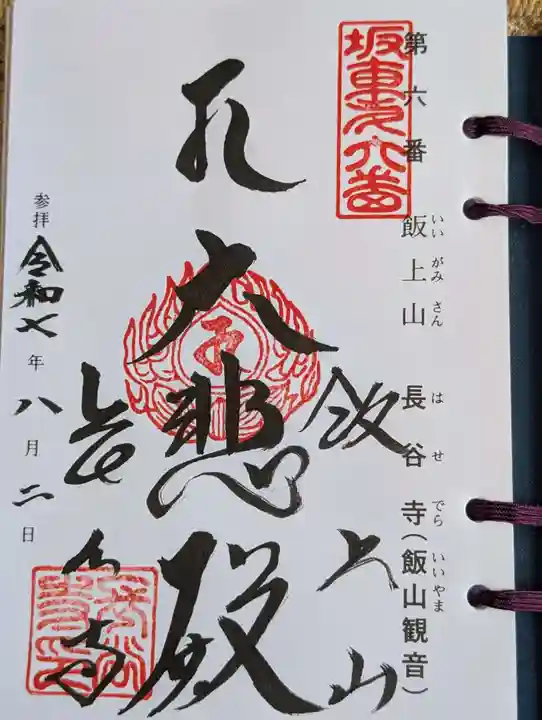 第六番 飯上山 長谷寺(飯山観音)
いいがみさん はせでら いいやま
坂東第六番
飯上山
大悲殿
長谷寺
参拝 令和七年八月二日